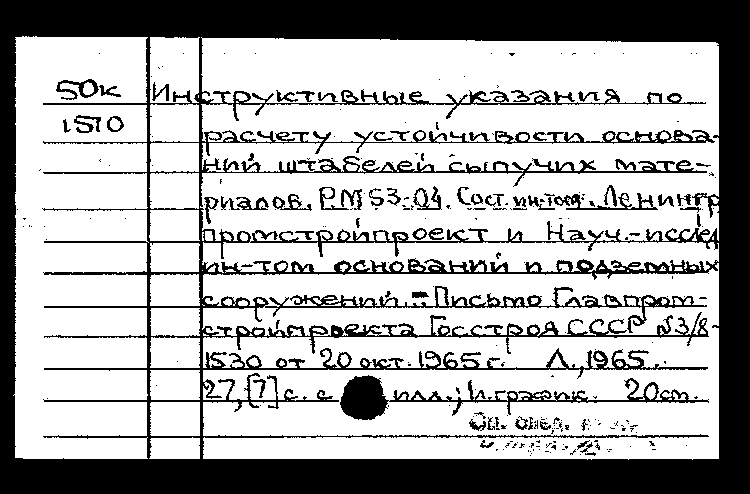 50к Инструктивные указания по
1510
расчету устойчивости основа-
ний штабелей сыпучих мате-
риалов. РМ 53-04. Сост. ин-том. Ленингр
промстройпроект и Науч.-исслед
ин-том оснований и подземных
сооружений. – Письмо Главпром-
стройпроекта Госстроя СССР №3/8-
1530 от 20 окт. 1965 г. Л., 1965.
27, [7] с. с илл.; и график. 20 см.